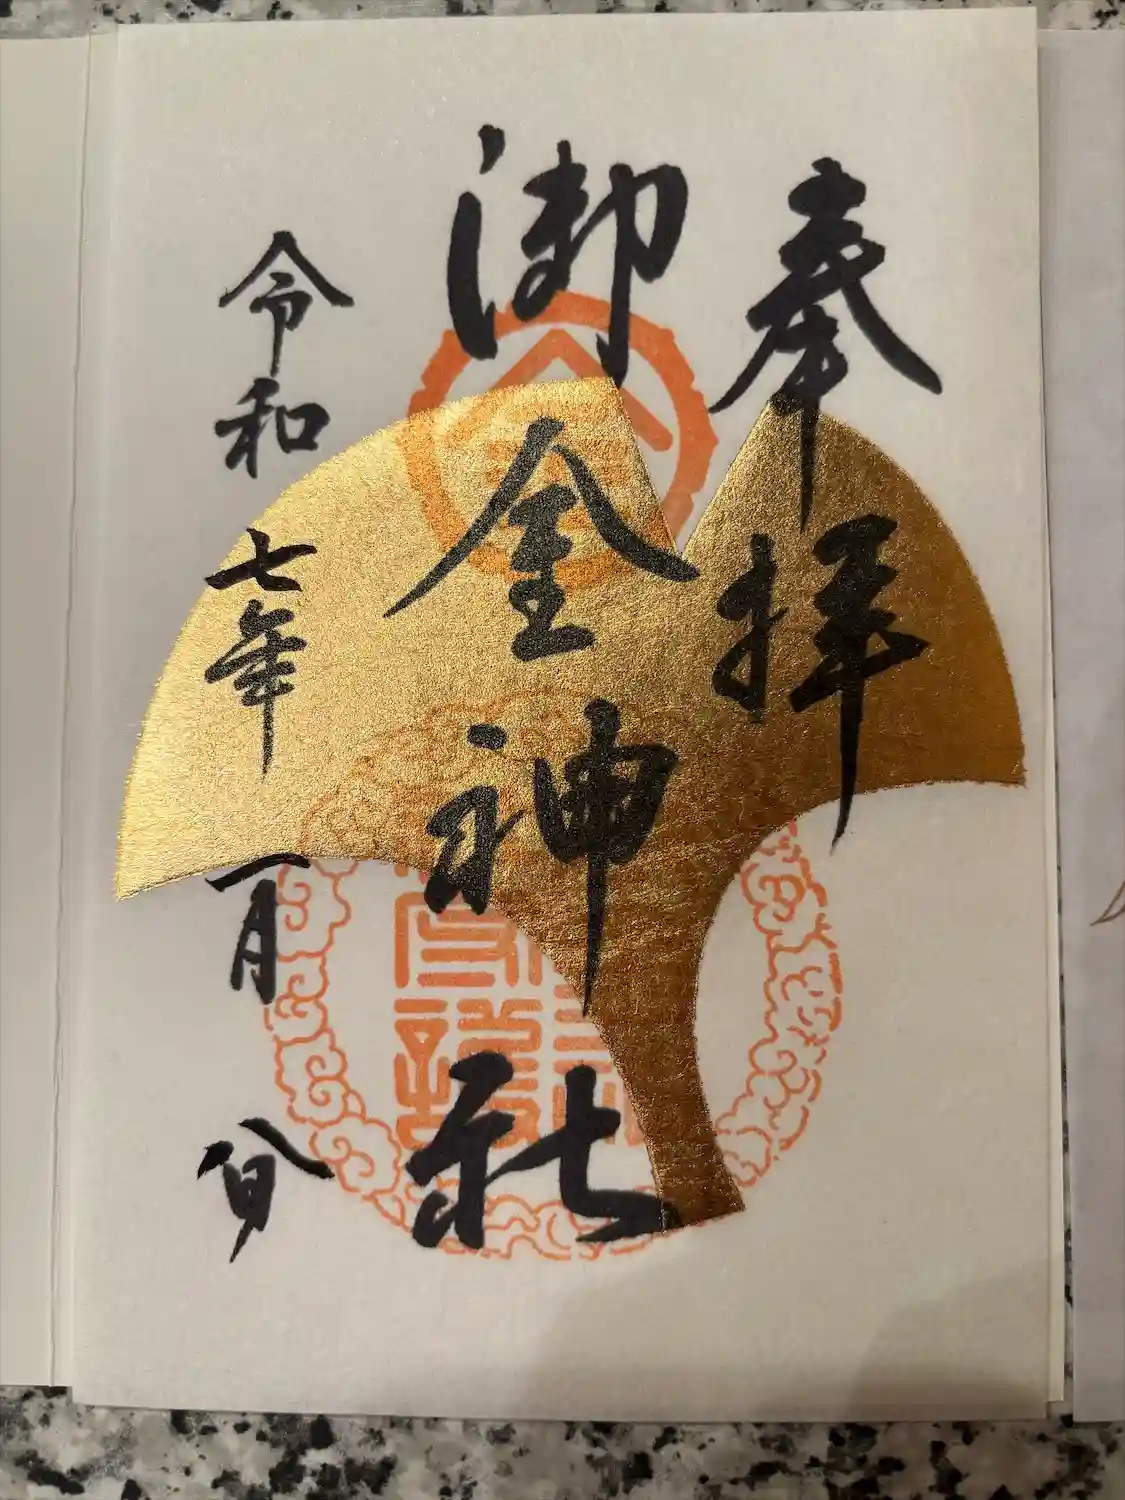 奉拝
御金神社
令和七年一月八日